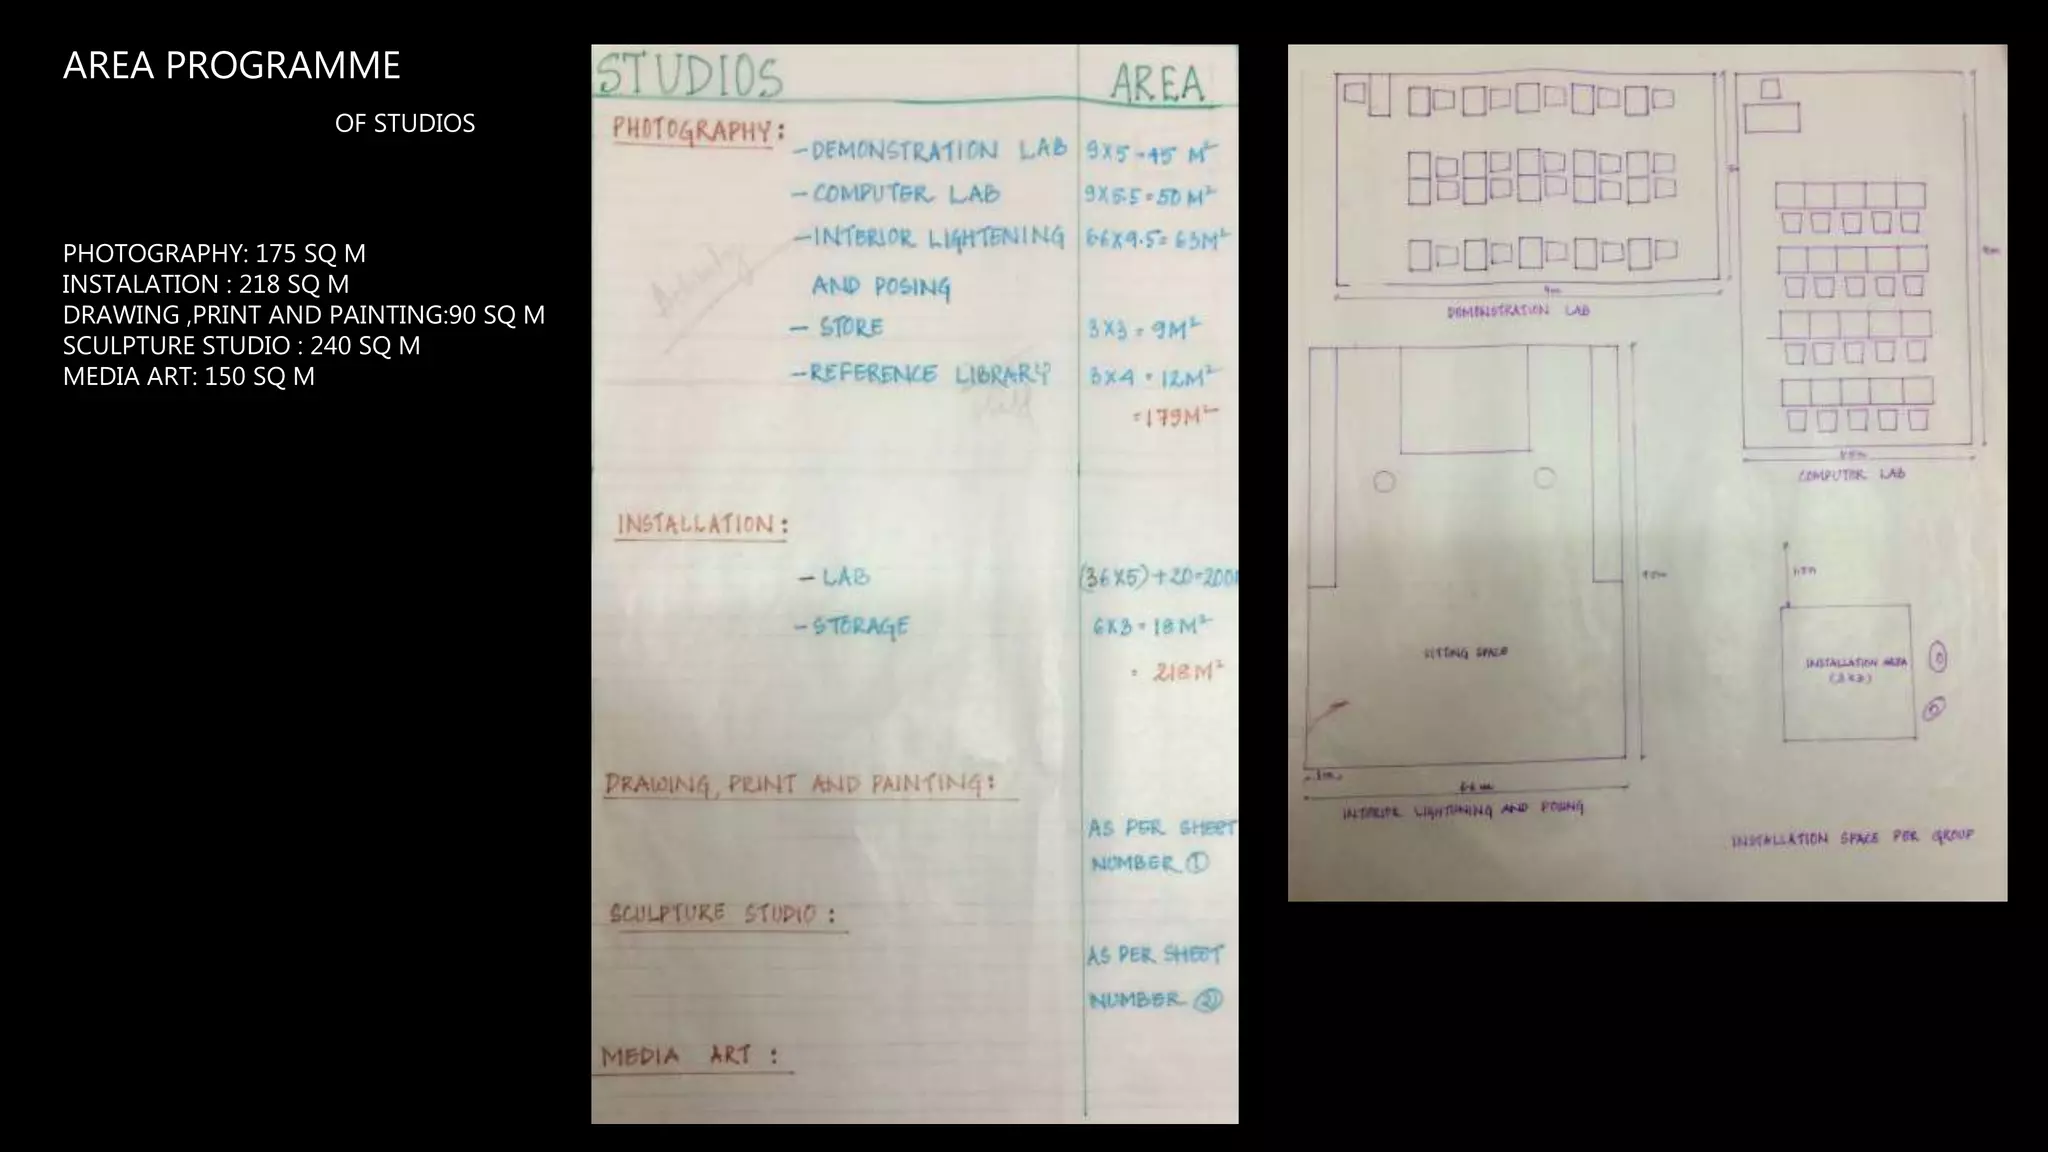 AREA PROGRAMME
OF STUDIOS
PHOTOGRAPHY: 175 SQ M
INSTALATION : 218 SQ M
DRAWING ,PRINT AND PAINTING:90 SQ M
SCULPTURE STUDIO : 240 SQ M
MEDIA ART: 150 SQ M
STUDIOS AREA
PHOTOGRAPHY:
- DEMONSTRATION LAB 9X5 = 45 M²
- COMPUTER LAB 9X5.5 = 50 M²
- INTERIOR LIGHTENING 6.6X9.5 = 63M²
AND POSING
- STORE 3X3 = 9M²
- REFERENCE LIBRARY 3X4 = 12M²
= 179M²
INSTALLATION:
- LAB (36X5)+20=200
- STORAGE 6X3 = 18M²
= 218M²
DRAWING, PRINT AND PAINTING:
AS PER SHEET
NUMBER ①
SCULPTURE STUDIO :
AS PER SHEET
NUMBER ②
MEDIA ART :
9m
DEMONSTRATION LAB
COMPUTER LAB
SITTING SPACE
1m
6.6 m
INTERIOR LIGHTENING AND POSING
INSTALLATION AREA
INSTALLATION SPACE PER GROUP